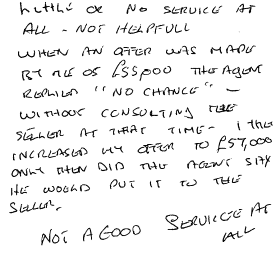 LITTLE OR NO SERVICE AT
ALL - NOT HELPFULL
WHEN AN OFFER WAS MADE
BY ME OF £55,000 THE AGENT
REPLIED "NO CHANCE" -
WITHOUT CONSULTING THE
SELLER AT THAT TIME - I THEN
INCREASED MY OFFER TO £57,000
ONLY THEN DID THE AGENT SAY
HE WOULD PUT IT TO THE
SELLER.
NOT A GOOD SERVICE AT
ALL